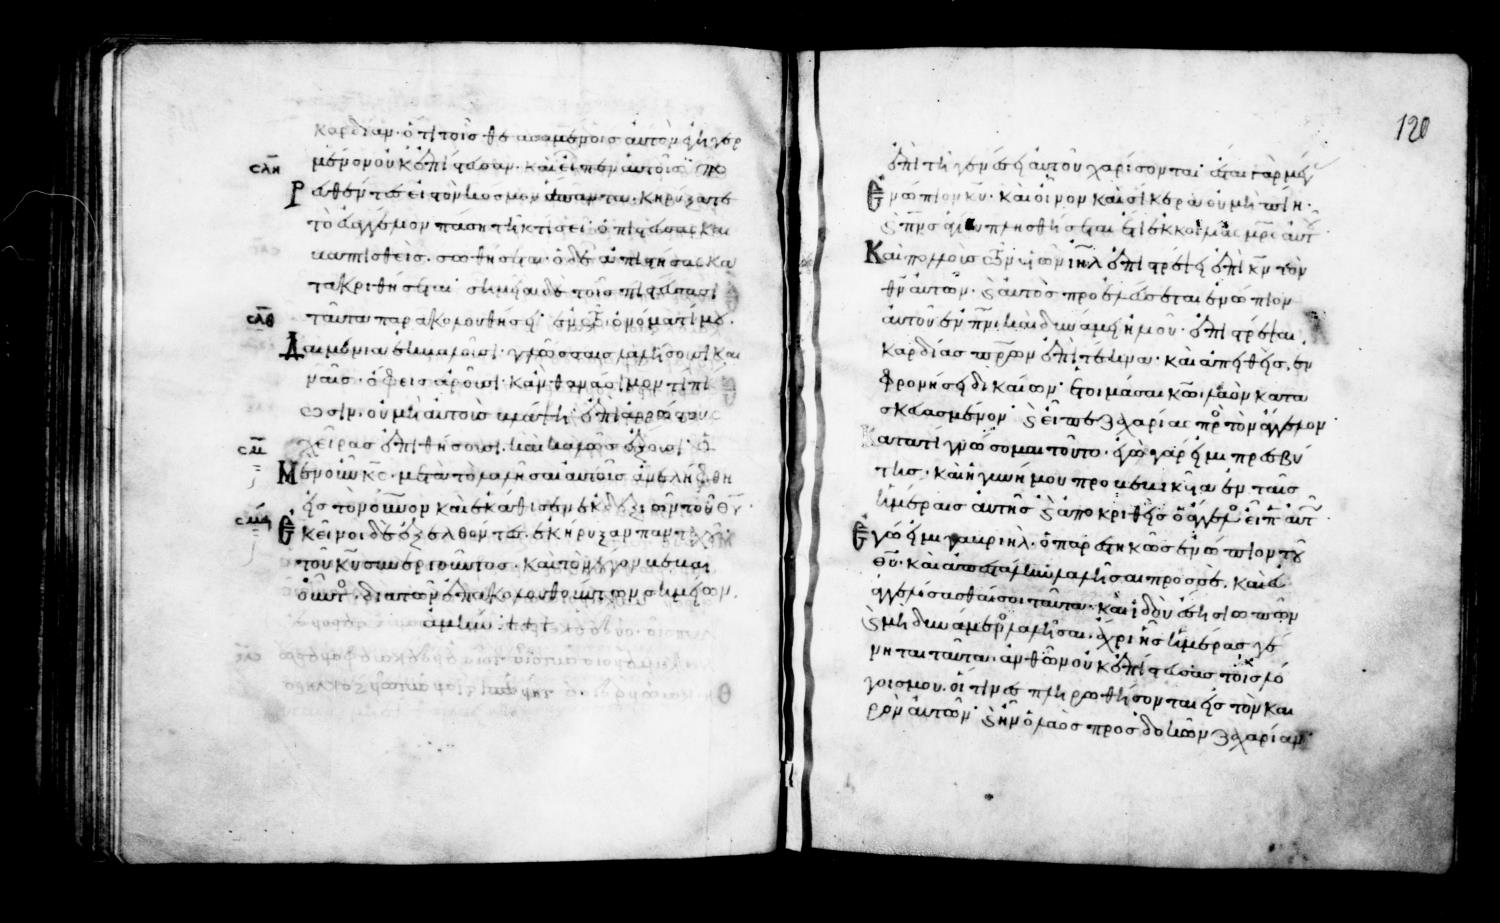 καρδίαν· ὅτι τοῖς θεασαμένοις αὐτὸν ἐγηγερ
μένον οὐκ ἐπίστευσαν· καὶ εἶπεν αὐτοῖς πο
σλη
ρευθέντες εἰς τὸν κόσμον ἅπαντα· κηρύξατε
τὸ εὐαγγέλιον πάση τῆ κτίσει· ὁ πιστεύσας καὶ
βαπτισθεὶς· σωθήσεται· ὁ δὲ ἀπιστήσας κα
τακριθήσεται· σημεῖα δὲ τοῖς πιστεύσασι
ταῦτα παρακολουθήσει· ἐν τῶ ὀνόματί μου·
σλθ
Δαιμόνια ἐκβαλοῦσι· γλώσσαις λαλήσουσι και
ναῖς· ὄφεις ἀροῦσι· κἂν θανάσιμόν τι πί
ωσιν· οὐ μὴ αὐτοὺς βλάψη· ἐπὶ ἀρρώστους
χεῖρας ἐπιθήσουσι· καὶ καλῶς ἕξουσι· ὁ
σμ
Μὲν οὖν κς· μετὰ τὸ λαλῆσαι αὐτοῖς ἀνελήφθη
εἰς τὸν οὐνον καὶ ἐκάθισεν ἐκ δεξιῶν τοῦ θυ·
σμα
Ἐκεῖνοι δὲ ἐξελθόντες· ἐκήρυξαν πανταχοῦ·
τοῦ κυ συνεργοῦντος· καὶ τὸν λόγον βεβαι
οῦντος· διὰ τῶν ἐπακολουθούντων σημείων.
ἀμήν·
120
ἐπὶ τῆ γενέσει αὐτοῦ χαρίσονται· ἔσται γὰρ μέγ
Ἐνώπιον κυ· καὶ οἶνον καὶ σίκερα οὐ μὴ πίη·
ϗ πνς ἁγίου πλησθήσεται ἔτι ἐκ κοιλίας μρς αὐτ
Καὶ πολλοὺς τῶν υἱῶν ιηλ ἐπιστρέψει ἐπὶ κν τὸν
θν αὐτῶν· ϗ αὐτὸς προελεύσεται ἐνώπιον
αὐτοῦ ἐν πνι καὶ δυνάμει ἡλιοῦ· ἐπιστρέψαι
καρδίας πρων ἐπὶ τέκνα· καὶ ἀπειθεῖς. ἐν
φρονήσει δικαίων· ἑτοιμάσαι κω λαὸν κατε
σκευασμένον· ϗ εἶπε ζαχαρίας πρὸς τὸν ἄγγελον·
Κατὰ τί γνώσομαι τοῦτο· ἐγὼ γάρ εἰμι πρεσβύ
της· καὶ ἡ γυνή μου προβεβηκυῖα ἐν ταῖς
ἡμέραις αὐτῆς ϗ ἀποκριθεὶς ὁ ἄγγελος εἶπεν αὐτ·
Ἐγώ εἰμι γαβριήλ· ὁ παρεστηκὼς ἐνώπιον τοῦ
θυ· καὶ ἀπεστάλην λαλῆσαι πρὸς σέ· καὶ εὐ
αγγελίσασθαί σοι ταῦτα· καὶ ἰδοὺ ἔση σιωπῶν
ϗ μὴ δυνάμενος λαλῆσαι. ἄχρι ἧς ἡμέρας γέ
νηται ταῦτα· ἀνθῶν οὐκ ἐπίστευσας τοῖς λό
γοις μου. οἵτινες πληρωθήσονται εἰς τὸν και
ρὸν αὐτῶν· ϗ ἦν ὁ λαὸς προσδοκῶν ζαχαρίαν·